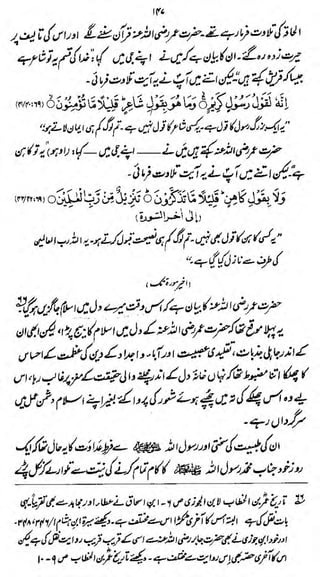 ۱۴۷
الحاقۃ کی تلاوت فرما رہے تھے۔ حضرت عمر رضی اللہ عنہ قرآن سننے لگے اور اس کی تالیف پر
حیرت زدہ رہ گئے۔ ان کا بیان ہے کہ میں نے اپنے جی میں کہا: ”خدا کی قسم یہ تو شاعر ہے
جیسا کہ قریش کہتے ہیں“ لیکن اتنے میں آپؐ نے یہ آیت تلاوت فرمائی۔
إِنَّهُ لَقَوْلُ رَسُولٍ كَرِيمٍ ۝ وَمَا هُوَ بِقَوْلِ شَاعِرٍ قَلِيلًا مَّا تُؤْمِنُونَ ۝ (۴۱/۴۰:۶۹)
”یہ ایک بزرگ رسول کا قول ہے۔ یہ کسی شاعر کا قول نہیں ہے۔ تم لوگ کم ہی ایمان لاتے ہو“
حضرت عمر رضی اللہ عنہ کہتے ہیں میں نے ــــ اپنے جی میں ــــ کہا: (اوہو) یہ تو کاہن
ہے۔“ لیکن اتنے میں آپؐ نے یہ آیت تلاوت فرمائی۔
وَلَا بِقَوْلِ كَاهِنٍ قَلِيلًا مَّا تَذَكَّرُونَ ۝ تَنزِيلٌ مِّن رَّبِّ الْعَالَمِينَ ۝ (۴۳/۴۲:۶۹)
(إلى آخر السورة)
”یہ کسی کاہن کا قول بھی نہیں۔ تم لوگ کم ہی نصیحت قبول کرتے ہو۔ یہ اللہ رب العالمین
کی طرف سے نازل کیا گیا ہے۔“
(اخیر سورۃ تک)
حضرت عمر رضی اللہ عنہ کا بیان ہے کہ اس وقت میرے دل میں اسلام جاگزیں ہو گیا
یہ پہلا موقع تھا کہ حضرت عمر رضی اللہ عنہ کے دل میں اسلام کا بیج پڑا، لیکن ابھی ان
کے اندر جاہلی جذبات، تقلیدی عصبیت اور آباء و اجداد کے دین کی عظمت کے احساس
کا چھلکا اتنا مضبوط تھا کہ نہاں خانۂ دل کے اندر مچلنے والی حقیقت کے مغز پر غالب رہا، اس
لیے وہ اس چھلکے کی تہ میں چھپے ہوئے شعور کی پروا کیے بغیر اپنے اسلام دشمن عمل میں
سرگرداں رہے۔
ان کی طبیعت کی سختی اور رسول اللہ ﷺ سے فرطِ عداوت کا یہ حال تھا کہ ایک
روز خود جناب محمد رسول اللہ ﷺ کا کام تمام کرنے کی نیت سے تلوار لے کر نکل پڑے
تاریخ عمر بن الخطاب لابن الجوزی ص ۶۔ ابن اسحاق نے عطاء اور مجاہد سے بھی تقریباً یہی
بات نقل کی ہے البتہ اس کا آخری ٹکڑا اس سے مختلف ہے۔ دیکھئے سیرۃ ابن ہشام ۱/۳۴۶، ۳۴۸
اور خود ابن جوزی نے بھی حضرت جابر رضی اللہ عنہ سے اسی کے قریب قریب روایت نقل کی ہے لیکن
اس کا آخری حصہ بھی اس روایت سے مختلف ہے۔ دیکھئے تاریخ عمر بن الخطاب ص ۹-۱۰